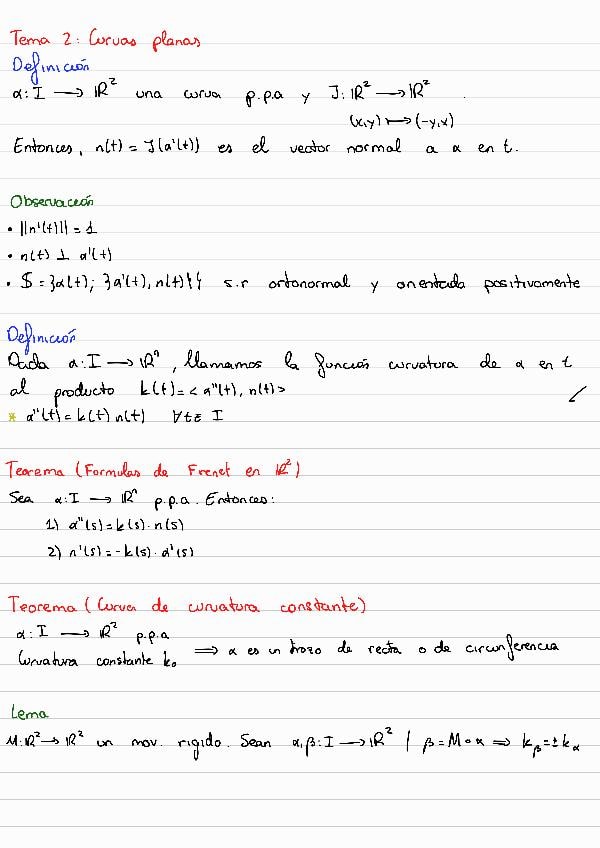 Tema 2: Curvas planas
Definición
α: I → R² una curva p.p.a y J: R² → R² .
(x,y) ↦ (-y,x)
Entonces, n(t) = J(α'(t)) es el vector normal a α en t.
Observación
• ||n'(t)|| = 1
• n(t) ⊥ α'(t)
• S = {α(t); {α'(t), n(t)}} s.r ortonormal y orientada positivamente
Definición
Dada α: I → Rⁿ, llamamos la función curvatura de α en t
al producto k(t) = < α''(t), n(t) >
* α''(t) = k(t) n(t) ∀t ∈ I
Teorema (Formulas de Frenet en R²)
Sea α: I → Rⁿ p.p.a. Entonces:
1) α''(s) = k(s) · n(s)
2) n'(s) = -k(s) · α'(s)
Teorema (Curva de curvatura constante)
α: I → R² p.p.a
Curvatura constante k₀ ⇒ α es un trozo de recta o de circunferencia
Lema
M: R² → R² un mov. rigido. Sean α, β: I → R² / β = M ∘ α ⇒ k_β = ± k_α